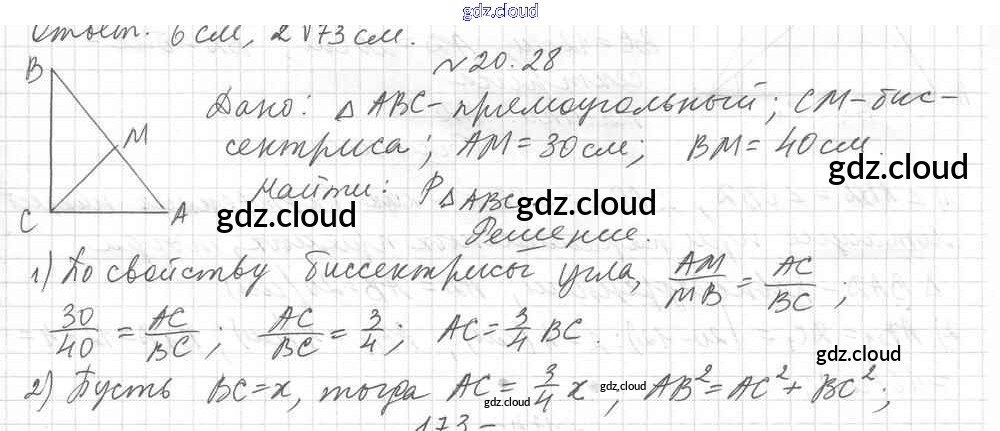 gdz.cloud
Ответ. 6 см, 2√73 см.
№20.28
B
M
C
A
Дано: △ABC - прямоугольный; CM - бис-
сектриса; AM = 30 см; BM = 40 см.
gdz.cloud
Найти: P△ABC.
gdz.cloud
gdz.cloud
Решение.
1) По свойству биссектрисы угла, AM/MB = AC/BC;
30/40 = AC/BC; AC/BC = 3/4; AC = 3/4 BC.
gdz.cloud
gdz.cloud
2) Пусть BC = x, тогда AC = 3/4 x; AB² = AC² + BC²;
gdz.cloud
gdz.cloud